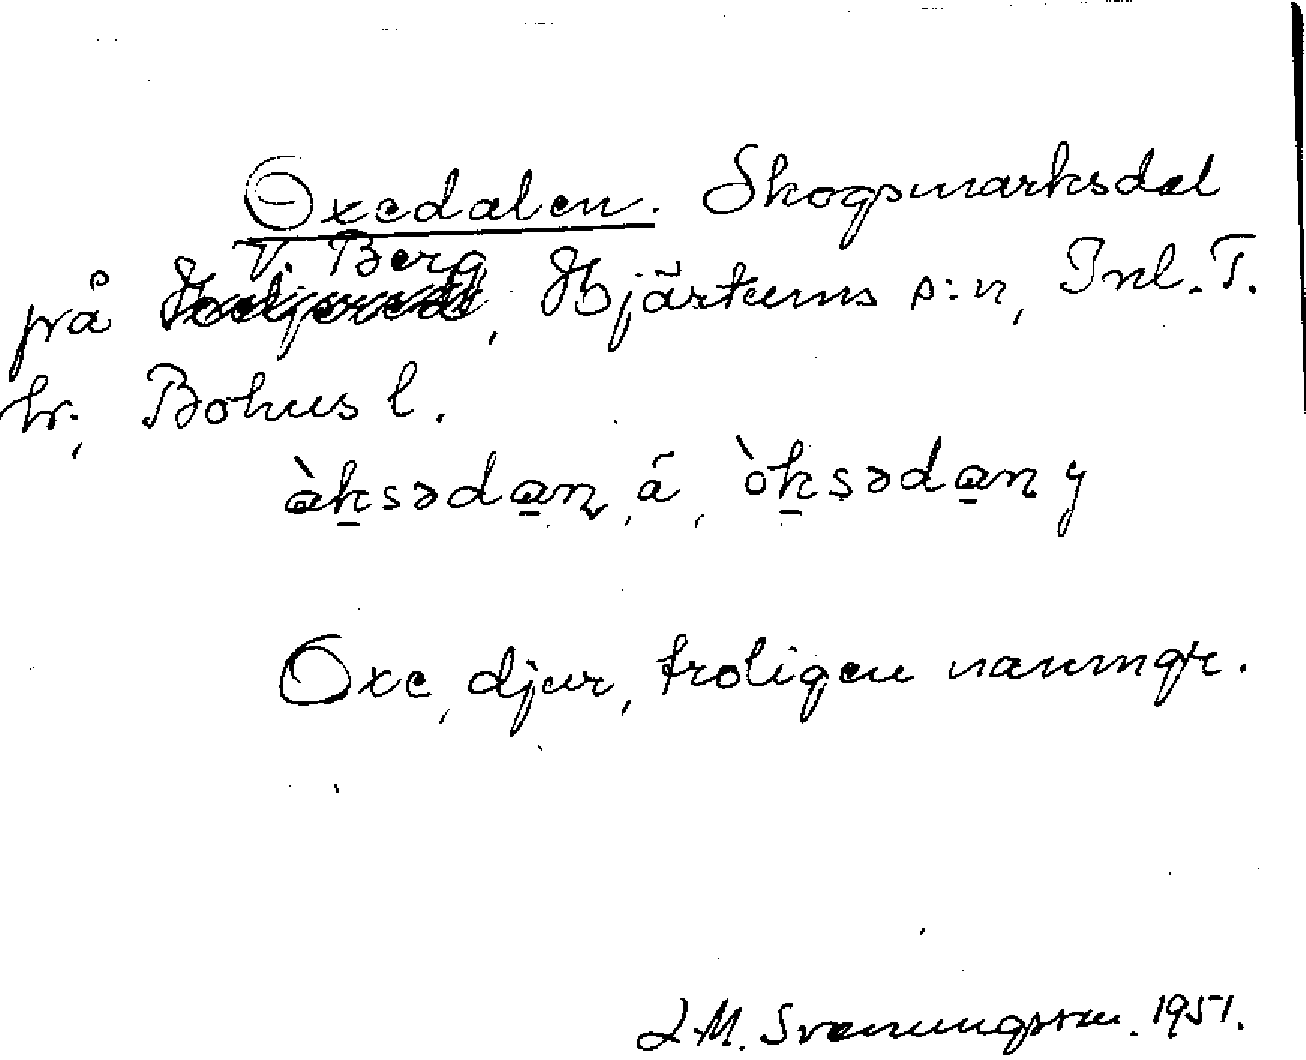 Oxedalen. Skogsmarksdal
V. Berg
på , Hjärtums s:n, Inl. T.
hr, Bohus l.
àksədan, ä, òksədan y
Oxe, djur, troligen namngr.
L.M. Svenungsson. 1951.